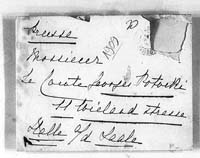 Prusse
Monsieur
Le Comte Georges Potocki
11 Wieland Strasse
Halle a/d Saale